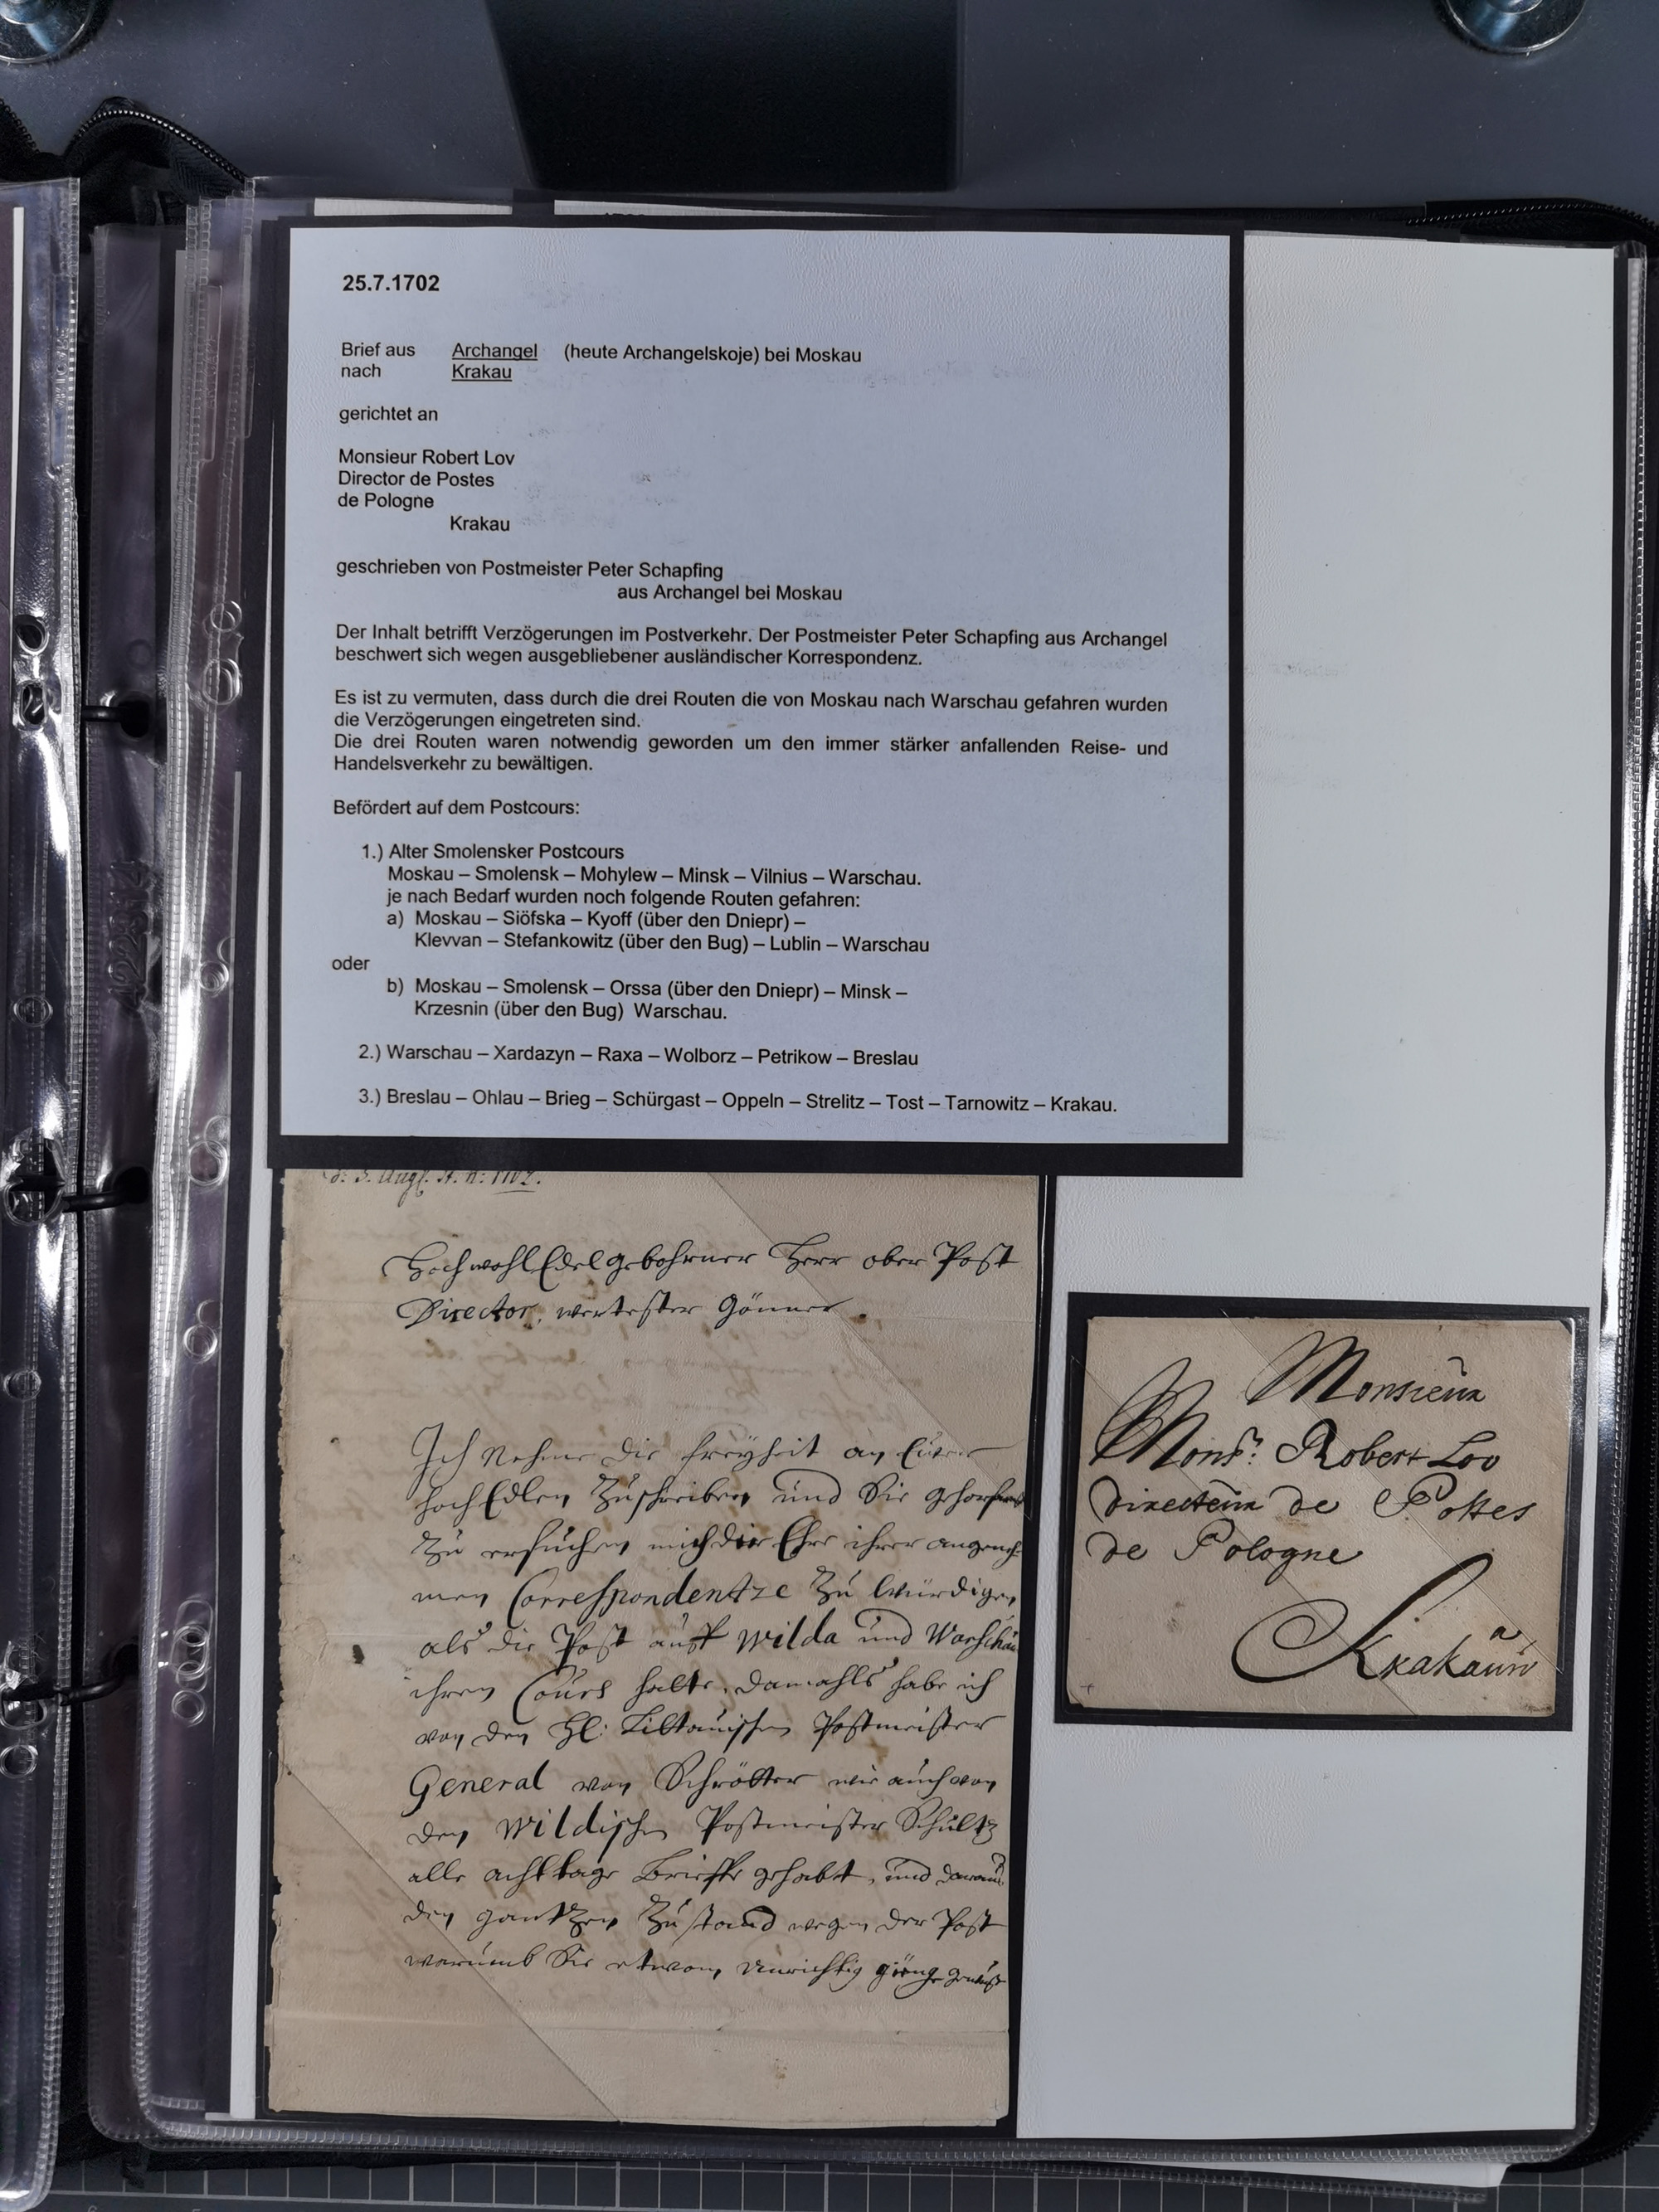 25.7.1702
Brief aus Archangel (heute Archangelskoje) bei Moskau
nach Krakau
gerichtet an
Monsieur Robert Lov
Director de Postes
de Pologne
Krakau
geschrieben von Postmeister Peter Schapfing
aus Archangel bei Moskau
Der Inhalt betrifft Verzögerungen im Postverkehr. Der Postmeister Peter Schapfing aus Archangel
beschwert sich wegen ausgebliebener ausländischer Korrespondenz.
Es ist zu vermuten, dass durch die drei Routen die von Moskau nach Warschau gefahren wurden
die Verzögerungen eingetreten sind.
Die drei Routen waren notwendig geworden um den immer stärker anfallenden Reise- und
Handelsverkehr zu bewältigen.
Befördert auf dem Postcours:
1.) Alter Smolensker Postcours
Moskau – Smolensk – Mohylew – Minsk – Vilnius – Warschau.
je nach Bedarf wurden noch folgende Routen gefahren:
a) Moskau – Siöfska – Kyoff (über den Dniepr) –
Klevvan – Stefankowitz (über den Bug) – Lublin – Warschau
oder
b) Moskau – Smolensk – Orssa (über den Dniepr) – Minsk –
Krzesnin (über den Bug) Warschau.
2.) Warschau – Xardazyn – Raxa – Wolborz – Petrikow – Breslau
3.) Breslau – Ohlau – Brieg – Schürgast – Oppeln – Strelitz – Tost – Tarnowitz – Krakau.
d: 3. Augl. st. n: 1702.
HochwohlEdelgebohrner Herr ober Post
Director, wertester Gönner.
Ich Nehme die freyheit an Euer
hochEdlen Zuschreiben und Sie gehorsambst
Zu ersuchen mich die Ehre ihrer angeneh-
men Correspondentze Zu würdigen
als die Post auff Wilda und Warschau
ihren Cours halte. damahls habe ich
von den Littauischen Postmeister
General von Schrötter wie auch von
den Wildischen Postmeister Schultz
alle acht tage Brieffe gehabt, und daraus
den gantzen Zustand wegen der Post
warumb Sie etwan unrichtig ginge
Monsieur
Monsr: Robert Lov
Directeur de Postes
de Pologne
a
Krakauw